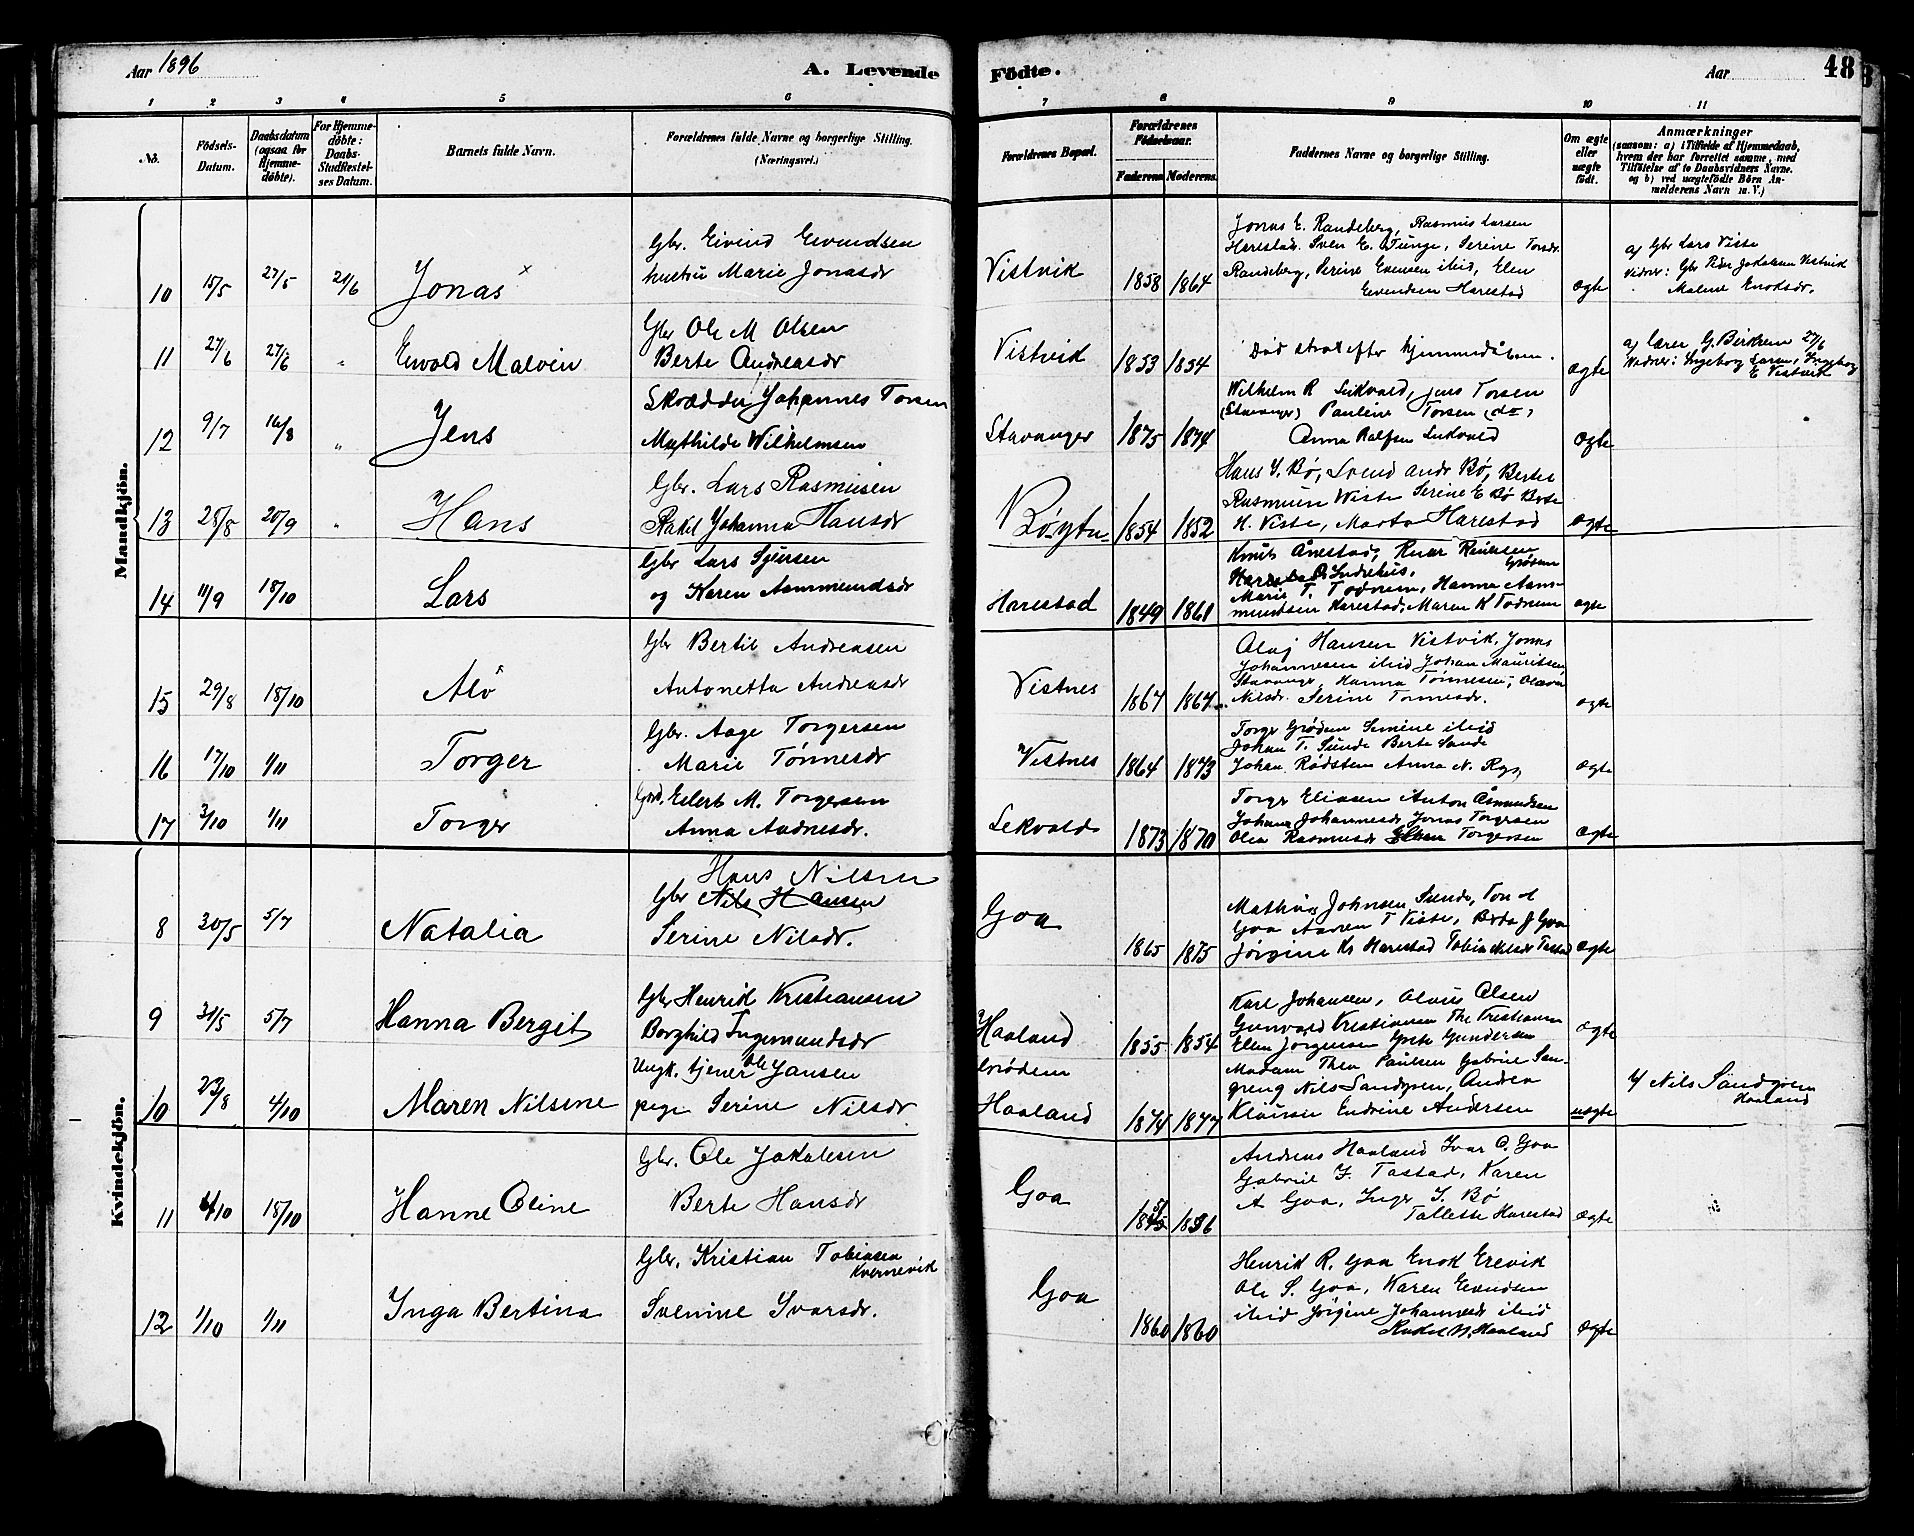 Aar 1896
A. Levende
Födte.
Aar
48
1 2 3 4 5 6 7 8 9 10 11
No.
Födsels-
Datum.
Daabsdatum
(ogsaa for
Hjemme-
döbte).
For Hjemme-
döbte:
Daabs-
Stadfæstel-
ses Datum.
Barnets fulde Navn.
Forældrenes fulde Navne og borgerlige Stilling.
(Næringsvei.)
Forældrenes Bopæl.
Forældrenes
Födselsaar.
Faderens Moderens.
Faddernes Navne og borgerlige Stilling.
Om ægte
eller
uægte
födt.
Anmærkninger
(saasom: a) i Tilfælde af Hjemmedaab,
hvem der har forrettet samme, med
Tilföielse af to Daabsvidners Navne.
og b) ved uægtefödte Börn An-
melderens Navn m. V.)
Mandkjön.
10 15/5 27/5 21/6 Jonas
Gbr. Eivind Eivindsen
hustru Marie Jonasdr
Vistvik 1858 1864
Jonas E. Randeberg, Rasmus Larsen
Harestad. Sven E. Tunge, Serine
Randeberg, Serine Evensen ibid, Elen
Eivendsen Harestad
ægte
af Gbr Lars Viste
Vidner: Gbr Peder Jakobsen Vistvik
Malene Enoksdr.
11 27/6 27/6 " Ewald Malvin
Gbr Ole M Olsen
Berte Andreasdr
Vistvik 1853 1854
Død strax efter hjemmedåben.
ægte
af Lærer G. Birkrem 27/6
Vidner: Ingeborg Larsen, Ingeborg
E Vistvik
12 9/7 16/8 " Jens
Skrædder Johannes Torsen
Mathilde Wilhelmsen
Stavanger 1875 1874
Wilhelm R Leikvold, Jens Torsen
(Stavanger) Pauline Torsen (do)
Anna Ralfsen Leikvold
ægte
13 28/8 20/9 " Hans
Gbr. Lars Rasmusen
Rakel Johanna Hansdr
1854 1852
Hans J. Bø, Svend Andr Bø, Berter
Rasmusen Wiste Serine E Bø Berte
H. Viste, Marta Harestad
ægte
14 11/9 18/10 Lars
Gbr Lars Sjursen
og Karen Aammundsdr
Harestad 1849 1861
Knut Ånestad,
Grødem
Marie T. Todnem, Hanna Aam-
mundsen Harestad, Maren K Todnem
ægte
15 29/8 18/10
Gbr Bertil Andreasen
Antonetta Andreasdr
Vistnes 1867 1867
Olaf Hansen Vistvik, Jonas
Johannesen ibid Johan Mauritsen
Stavanger, Hanna Tønnesen,
Nilsdr. Serine Tønnesdr.
ægte
16 17/10 1/11 Torger
Gbr. Aage Torgersen
Marie Tønnesdr
Vistnes 1864 1873
Torger Grødem Semine ibid
Johan T. Sunde Berte Sande
Johan Rødsten Anna N. Ryg
ægte
17 3/10 1/11 Torger
Gbr. Eilert M. Torgersen
Anna Andresdr.
Lekvold 1873 1870
Torger Eliasen Anton Åsmundsen
Johanna Johannesdr Jonas Torgersen
Olea Rasmusdr Torgersen
ægte
Kvindekjön.
8 30/5 5/7 Natalia
Hans Nilsen
Gbr Nils Hansen
Serine Nilsdr.
Goa 1865 1875
Mathias Johnsen Sunde, Ton H
Goa Aaren T Viste, Berta J Goa
Jørgine Kr Harestad Tobia Nilsdr Tastad
ægte
9 31/5 5/7 Hanna Bergit
Gbr Henrik Kristiansen
Borghild Ingemundsdr
Haaland 1855 1854
Karl Johansen, Olaus Olsen
Gunvald Kristiansen The Kristiansen
Elen Jørgensen Grete Gundersen
ægte
10 23/8 4/10 Maren Nilsine
Ungk. tjener Ole Jansen
pige Serine Nilsdr
Grødem
Haaland 1874 1877
Madam Thea Paulsen Gabriel San-
greng Nils Sandgren, Andrea
Klausen Endrine Andersen
uægte
b/ Nils Sandgren
Haaland
11 4/10 18/10 Hanne Oline
Gbr. Ole Jakobsen
Berte Hansdr
Goa 1856
Andreas Haaland Ivar O. Goa
Gabriel I. Tastad, Karen
A Goa, Inger S. Bø
Tallette Harestad
ægte
12 1/10 1/11 Inga Bertina
Gbr. Kristian Tobiasen
Kvernevik
Svenine Ivarsdr.
Goa 1860 1860
Henrik R. Goa Enok Erevik
Ole S. Goa, Karen Evendsen
ibid Jørgine Johannesdr ibid
Rakel N. Haaland
ægte